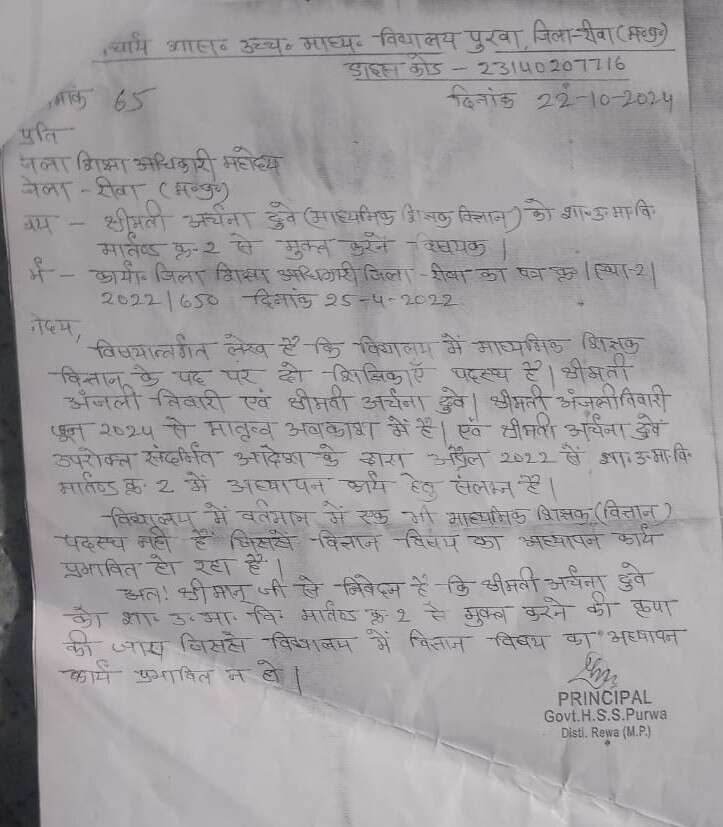 चार्य शास॰ उच्च॰ माध्य॰ विद्यालय पुरवा, जिला-रीवा (म॰प्र॰)
डाइस कोड - 23140207716
मांक 65 दिनांक 22-10-2024
प्रति
जला शिक्षा अधिकारी महोदय
जेला - रीवा (म॰प्र॰)
षय - श्रीमती अर्चना दुवे (माध्यमिक शिक्षक विज्ञान) को शा॰उ॰मा॰वि॰
मार्तण्ड क्र॰-2 से मुक्त करने विषयक |
र्भ - कार्या॰ जिला शिक्षा अधिकारी जिला - रीवा का पत्र क्र॰ | स्था-2 |
2022 | 650 दिनांक 25-4-2022
होदय,
विषयान्तर्गत लेख है कि विद्यालय में माध्यमिक शिक्षक
विज्ञान के पद पर दो शिक्षिकाएँ पदस्थ है | श्रीमती
अंजली तिवारी एवं श्रीमती अर्चना दुवे | श्रीमती अंजली तिवारी
जून 2024 से मातृत्व अवकाश में है | एवं श्रीमती अर्चना दुवे
उपरोक्त संदर्भित आदेश के द्वारा अप्रैल 2022 से शा॰उ॰मा॰वि॰
मार्तण्ड क्र॰ 2 में अध्यापन कार्य हेतु संलग्न है |
विद्यालय में वर्तमान में एक भी माध्यमिक शिक्षक (विज्ञान)
पदस्थ नहीं है जिससे विज्ञान विषय का अध्यापन कार्य
प्रभावित हो रहा है |
अतः श्रीमान् जी से निवेदन है कि श्रीमती अर्चना दुवे
को शा॰ उ॰ मा॰ वि॰ मार्तण्ड क्र॰ 2 से मुक्त करने की कृपा
की जाय जिससे विद्यालय में विज्ञान विषय का अध्यापन
कार्य प्रभावित न हो |
PRINCIPAL
Govt.H.S.S.Purwa
Distt. Rewa (M.P.)